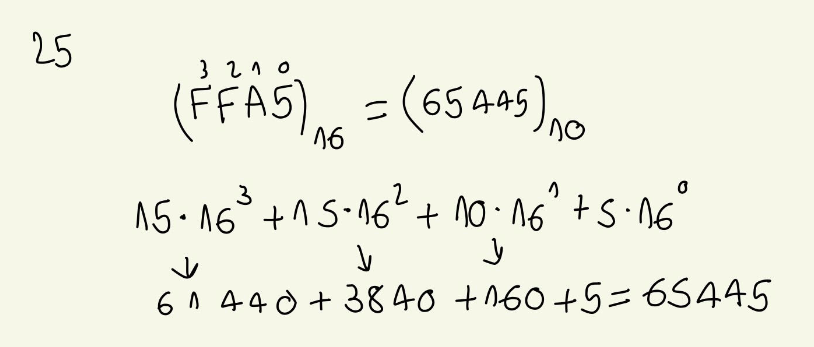 25
3 2 1 0
(FFA5)₁₆ = (65445)₁₀
15·16³ + 15·16² + 10·16¹ + 5·16⁰
↓ ↓ ↓
61440 + 3840 + 160 + 5 = 65445